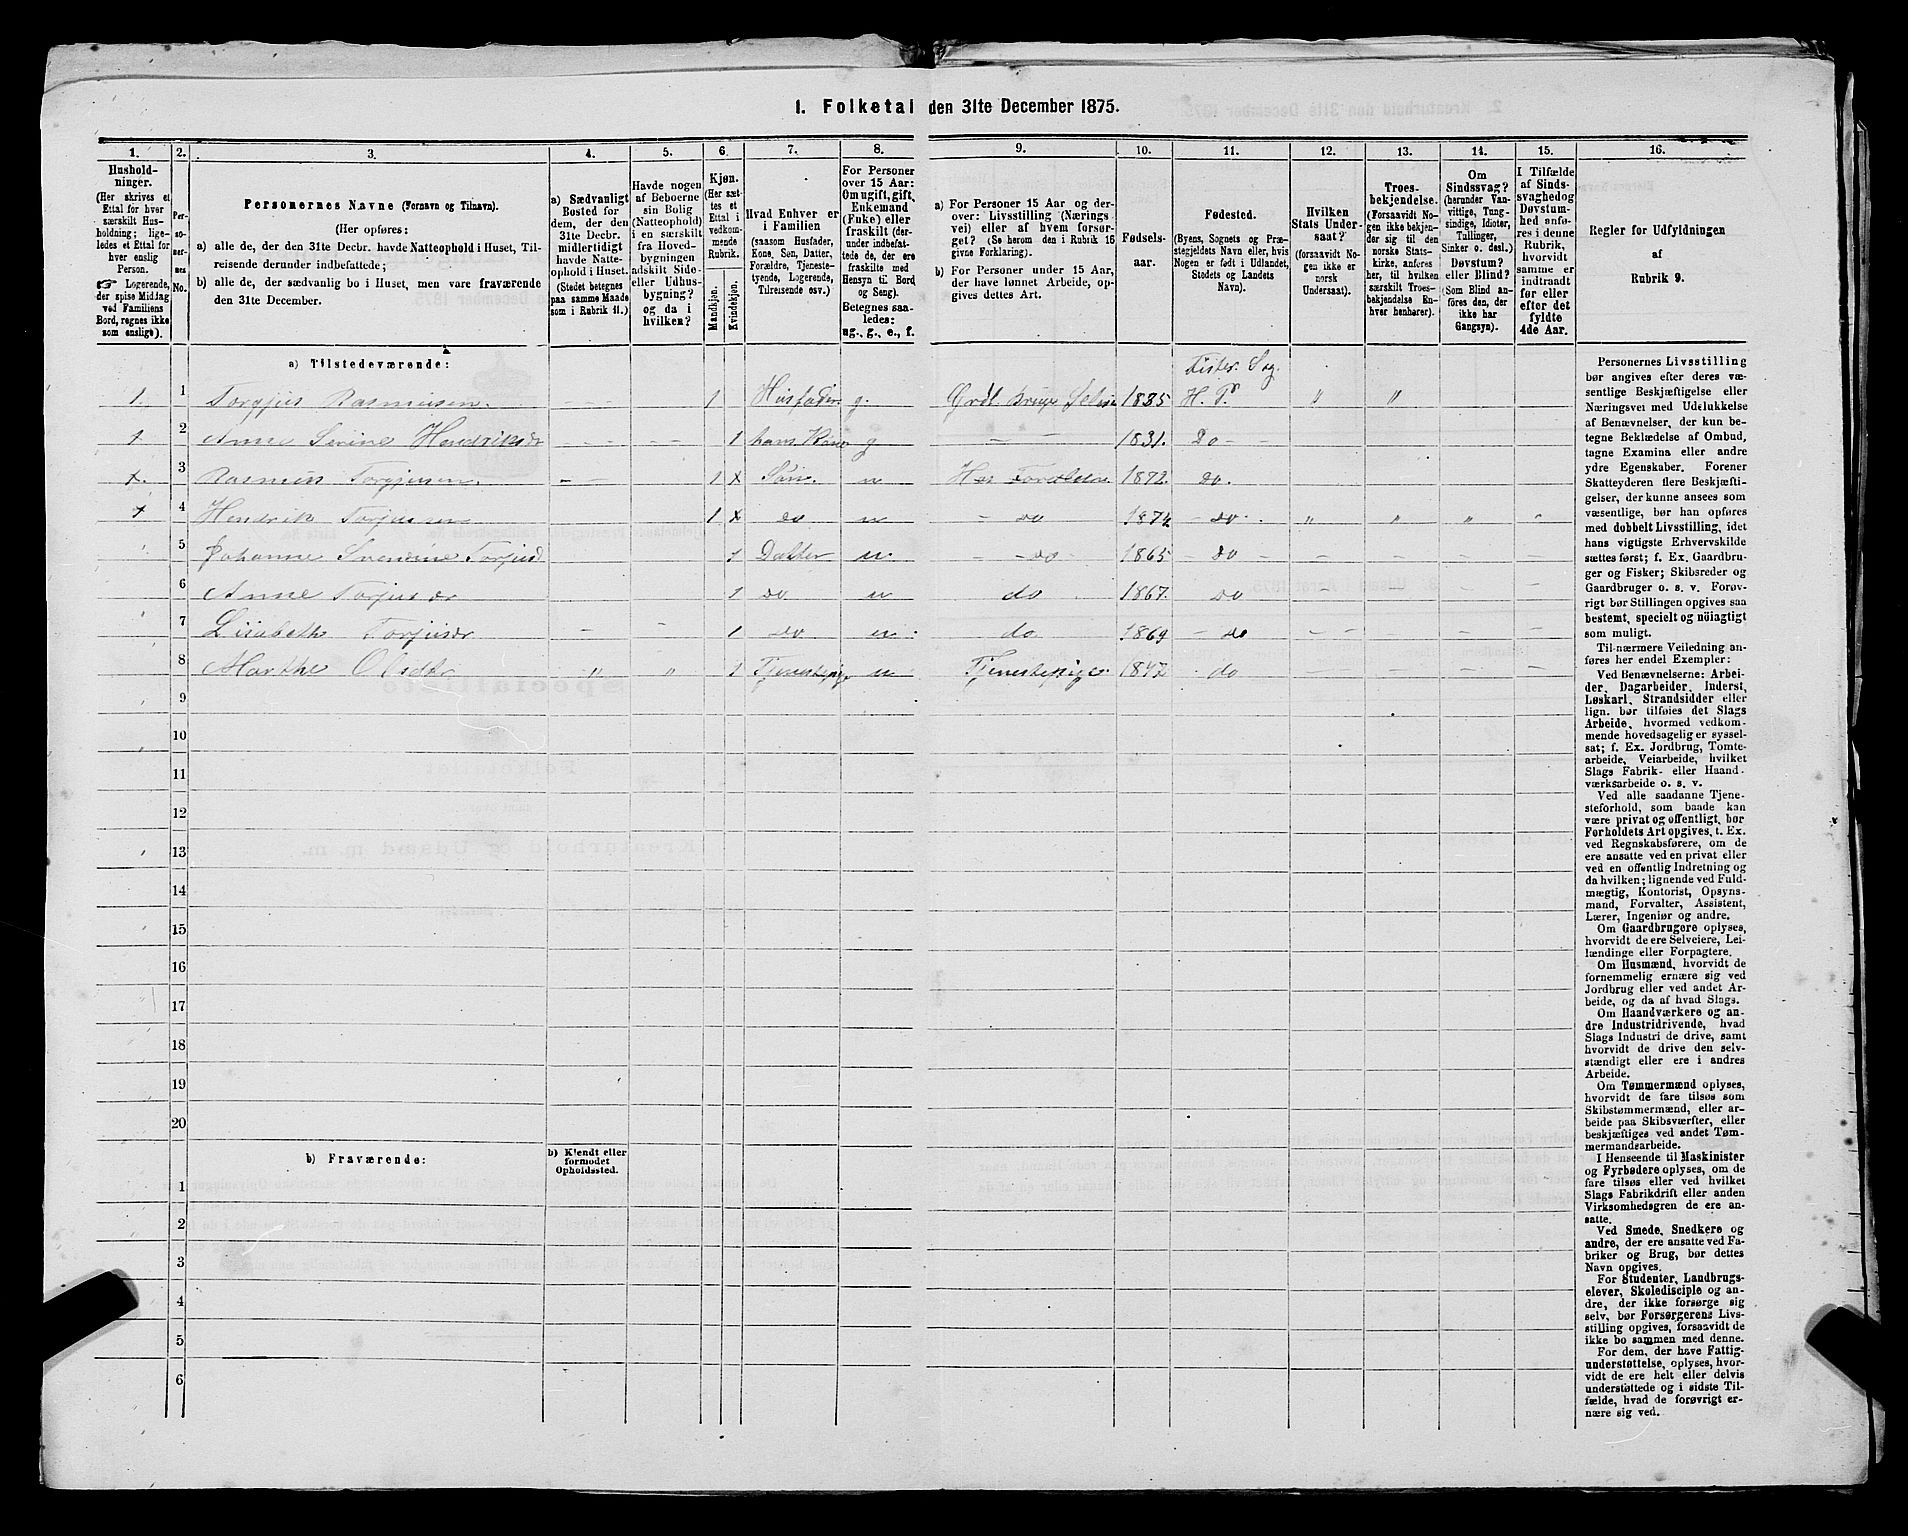 1. Folketal den 31te December 1875.
1. 2. 3. 4. 5. 6. 7. 8. 9. 10. 11. 12. 13. 14. 15. 16.
Hushold-
ninger.
(Her skrives et
Ettal for hver
særskilt Hus-
holdning; lige-
ledes et Ettal for
hver enslig
Person.
☞ Logerende,
der spise Middag
ved Familiens
Bord, regnes ikke
som enslige).
Per-
so-
ner-
nes
No.
Personernes Navne (Fornavn og Tilnavn).
(Her opføres:
a) alle de, der den 31te Decbr. havde Natteophold i Huset, Til-
reisende derunder indbefattede;
b) alle de, der sædvanlig bo i Huset, men vare fraværende
den 31te December.
a) Sædvanligt
Bosted for
dem, der den
31te Decbr.
midlertidigt
havde Natte-
ophold i Huset.
(Stedet betegnes
paa samme Maade
som i Rubrik 11.)
Havde nogen
af Beboerne
sin Bolig
(Natteophold)
i en særskilt
fra Hoved-
bygningen
adskilt Side-
eller Udhus-
bygning?
og da i
hvilken?
Kjøn.
(Her sæt-
tes et
Ettal i
vedkom-
mende
Rubrik.
Mandkjøn.
Kvindekjøn.
Hvad Enhver er
i Familien
(saasom Husfader,
Kone, Søn, Datter,
Forældre, Tjeneste-
tyende, Logerende,
Tilreisende osv.)
For Personer
over 15 Aar:
Om ugift, gift,
Enkemand
(Enke) eller
fraskilt (der-
under indbefat-
tede de, der ere
fraskilte med
Hensyn til Bord
og Seng).
Betegnes saa-
ledes:
ug., g., e., f.
a) For Personer 15 Aar og der-
over: Livsstilling (Nærings
vei) eller af hvem forsør-
get? (Se herom den i Rubrik 16
givne Forklaring).
b) For Personer under 15 Aar,
der have lønnet Arbeide, op-
gives dettes Art.
Fødsels-
aar.
Fødested.
(Byens, Sognets og Præ-
stegjeldets Navn eller, hvis
Nogen er født i Udlandet,
Stedets og Landets
Navn).
Hvilken
Stats Under-
saat?
(forsaavidt No-
gen ikke er
norsk
Undersaat).
Troes-
bekjendelse.
(Forsaavidt No-
gen ikke bekjen-
der sig til den
norske Stats-
kirke, anføres
her, til hvilken
særskilt Troes-
bekjendelse En-
hver henhører).
Om
Sindssvag?
(herunder Van-
vittige, Tung-
sindige, Idioter,
Tullinger,
Sinker o. desl.)
Døvstum?
eller Blind?
(Som Blind an-
føres den, der
ikke har
Gangsyn).
I Tilfælde
af Sinds-
svaghed og
Døvstum-
hed anfø-
res i denne
Rubrik,
hvorvidt
samme er
indtraadt
før eller
efter det
fyldte
4de Aar.
Regler for Udfyldningen
af
Rubrik 9.
a) Tilstedeværende:
Fister. Sog.
1. 1 Torgjus Rasmusen. 1 Husfader. g. Grdl. Bruge 1835 H. P. " "
1. 2 Anne Serine Hendriksdr 1 hans Kone g 1831. Do
x. 3 Rasmus Torgjusen. 1 x Søn. u Hos Forældrene 1872. do.
x 4 Hendrik Torjusen 1 x do u do 1874 do. " " " "
5 Johanne Torjusd 1 Datter u. do 1865 do
6 Anne Torjusdr 1 do. u do 1867. do
7 Lisabeth Torjusdr 1 do u. do 1869 do
8 Marthe Olsdtr " " 1 Tjenestepige u Tjenestepige 1847 do
9
10
11
12
13
14
15
16
17
18
19
20
b) Fraværende:
b) Kjendt eller
formodet
Opholdssted.
1
2
3
4
5
6
Personernes Livsstilling
bør angives efter deres væ-
sentlige Beskjæftigelse eller
Næringsvei med Udelukkelse
af Benævnelser, der kun be-
tegne Beklædelse af Ombud,
tagne Examina eller andre
ydre Egenskaber. Forener
Skatteyderen flere Beskjæfti-
gelser, der kunne ansees som
væsentlige, bør han opføres
med dobbelt Livsstilling, idet
hans vigtigste Erhvervskilde
sættes først; f. Ex. Gaardbru-
ger og Fisker; Skibsreder og
Gaardbruger o. s. v. Forøv-
rigt bør Stillingen opgives saa
bestemt, specielt og nøiagtigt
som muligt.
Til nærmere Veiledning an-
føres her endel Exempler:
Ved Benævnelserne: Arbei-
der, Dagarbeider, Inderst,
Løskarl, Strandsidder eller
lign. bør tilføies det Slags
Arbeide, hvormed vedkom-
mende hovedsagelig er syssel-
sat; f. Ex. Jordbrug, Tomte-
arbeide, Veiarbeide, hvilket
Slags Fabrik- eller Haand-
værksarbeide o. s. v.
Ved alle saadanne Tjene-
steforhold, som baade kan
være privat og offentligt, bør
Forholdets Art opgives, t. Ex.
ved Regnskabsførere, om de
ere ansatte ved en privat eller
ved en offentlig Indretning og
da hvilken; lignende ved Fuld-
mægtig, Kontorist, Opsyns-
mand, Forvalter, Assistent,
Lærer, Ingeniør og andre.
Om Gaardbrugere oplyses,
hvorvidt de ere Selveiere, Lei-
lændinge eller Forpagtere.
Om Husmænd, hvorvidt de
fornemmelig ernære sig ved
Jordbrug eller ved andet Ar-
beide, og da af hvad Slags.
Om Haandværkere og an-
dre Industridrivende, hvad
Slags Industri de drive, samt
hvorvidt de drive den selv-
stændigt eller ere i andres
Arbeide.
Om Tømmermænd oplyses,
hvorvidt de fare tilsøs som
Skibstømmermænd, eller ar-
beide paa Skibsværfter, eller
beskjæftiges ved andet Tøm-
mermandarbeide.
I Henseende til Maskinister
og Fyrbødere oplyses, om de
fare tilsøs eller ved hvilket
Slags Fabrikdrift eller anden
Virksomhedsgren de ere an-
satte.
Ved Smede, Snedkere og
andre, der ere ansatte ved Fa-
briker og Brug, bør dettes
Navn opgives.
For Studenter, Landbrugs-
elever, Skoledisciple og an-
dre, der ikke forsørge sig
selv, bør Forsørgerens Livs-
stilling opgives, forsaavidt de
ikke bo sammen med denne.
For dem, der have Fattig-
understøttelse, oplyses, hvor-
vidt de ere helt eller delvis
understøttede og i sidste Til-
fælde, hvad de forøvrigt er-
nære sig ved.